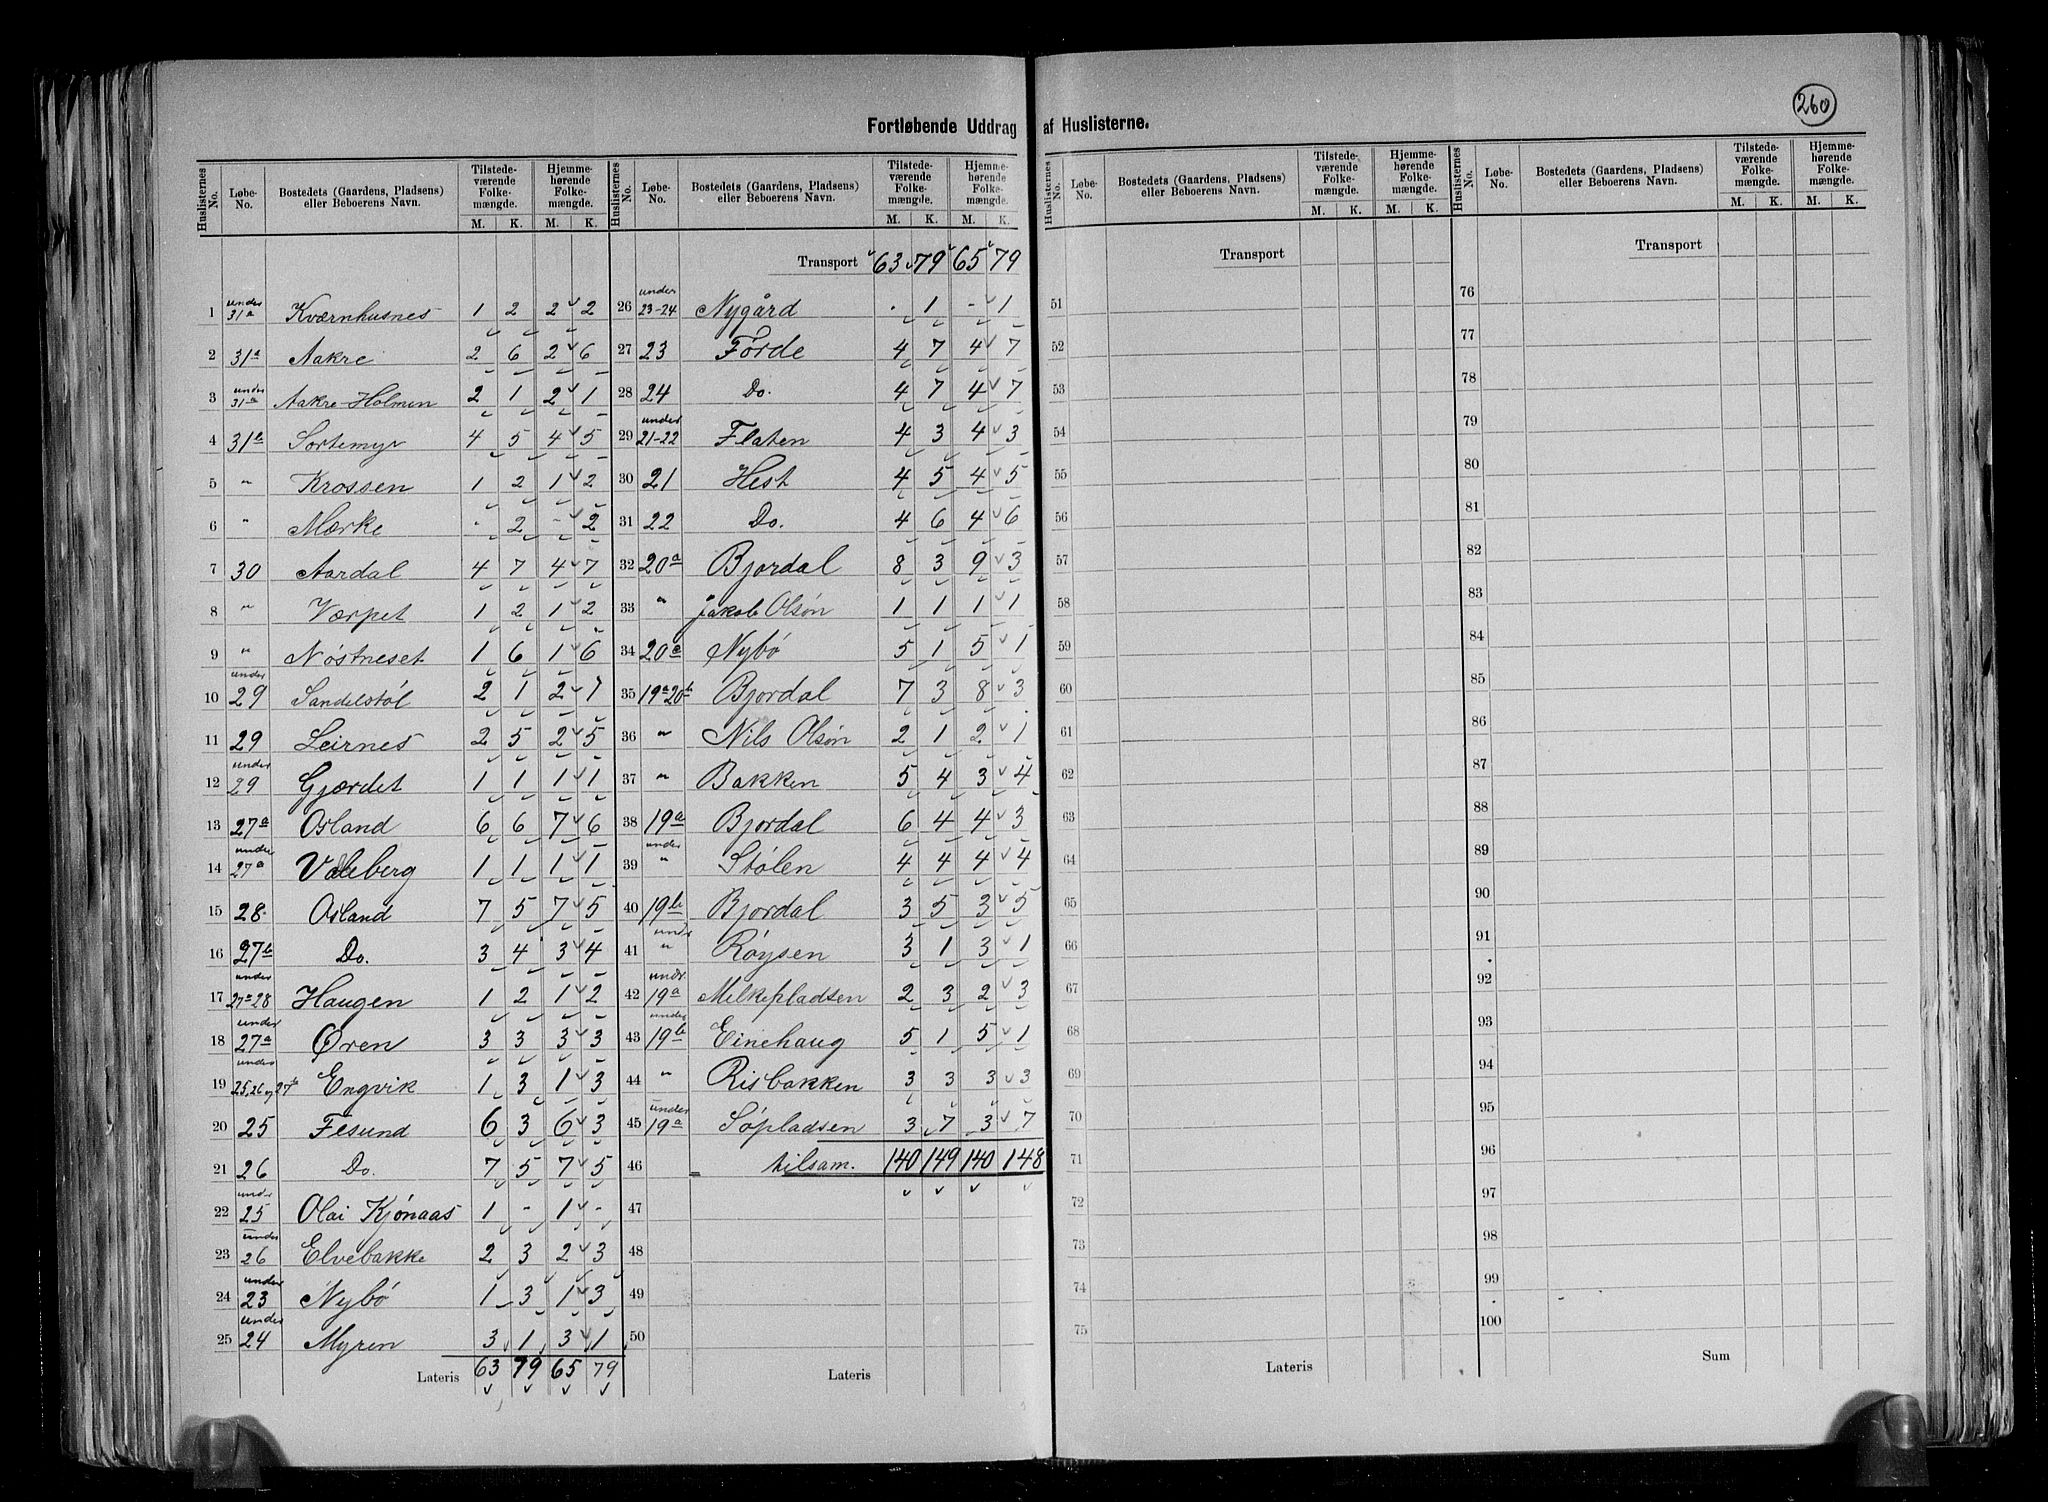 260
Fortløbende Uddrag af Huslisterne.
Huslisternes No. | Løbe-No. | Bostedets (Gaardens, Pladsens) eller Beboerens Navn. | Tilstedeværende Folkemængde. M. K. | Hjemmehørende Folkemængde. M. K.
1 under 31a Kværnhusnes 1 2 2 2
2 31a Aakre 2 6 2 6
3 under 31a Aakre-Holmen 2 1 2 1
4 31b Sortemyr 4 5 4 5
5 " Krossen 1 2 1 2
6 " Mærke - 2 - 2
7 30 Aardal 4 7 4 7
8 " Værpet 1 2 1 2
9 " Nøstneset 1 6 1 6
10 under 29 Sandelstøl 2 1 2 1
11 29 Leirnes 2 5 2 5
12 under 29 Gjærdet 1 1 1 1
13 27a Osland 6 6 7 6
14 under 27a Valeberg 1 1 1 1
15 28 Osland 7 5 7 5
16 27b Do. 3 4 3 4
17 under 27a-28 Haugen 1 2 1 2
18 under 27a Øren 3 3 3 3
19 under 25,26 og 27b Engvik 1 3 1 3
20 25 Flesund 6 3 6 3
21 26 Do. 7 5 7 5
22 under 25 Olai Kjønaas 1 - 1 -
23 under 26 Elvebakke 2 3 2 3
24 under 23 Nybø 1 3 1 3
25 under 24 Myren 3 1 3 1
Lateris 63 79 65 79
Huslisternes No. | Løbe-No. | Bostedets (Gaardens, Pladsens) eller Beboerens Navn. | Tilstedeværende Folkemængde. M. K. | Hjemmehørende Folkemængde. M. K.
Transport 63 79 65 79
26 under 23-24 Nygård - 1 - 1
27 23 Førde 4 7 4 7
28 24 Do. 4 7 4 7
29 under 21-22 Flaten 4 3 4 3
30 21 Hest 4 5 4 5
31 22 Do. 4 6 4 6
32 20a Bjordal 8 3 9 3
33 " Jakob Olsøn 1 1 1 1
34 20c Nybø 5 1 5 1
35 19a 20b Bjordal 7 3 8 3
36 " Nils Olsøn 2 1 2 1
37 " Bakken 5 4 3 4
38 19a Bjordal 6 4 4 3
39 under " Stølen 4 4 4 4
40 19b Bjordal 3 5 3 5
41 under " Røysen 3 1 3 1
42 undr. 19a Melkepladsen 2 3 2 3
43 under 19b Einehaug 5 1 5 1
44 " Risbakken 3 3 3 3
45 under 19a Søpladsen 3 7 3 7
46 tilsam. 140 149 140 148
47
48
49
50
Lateris
Huslisternes No. | Løbe-No. | Bostedets (Gaardens, Pladsens) eller Beboerens Navn. | Tilstedeværende Folkemængde. M. K. | Hjemmehørende Folkemængde. M. K.
Transport
51
52
53
54
55
56
57
58
59
60
61
62
63
64
65
66
67
68
69
70
71
72
73
74
75
Lateris
Huslisternes No. | Løbe-No. | Bostedets (Gaardens, Pladsens) eller Beboerens Navn. | Tilstedeværende Folkemængde. M. K. | Hjemmehørende Folkemængde. M. K.
Transport
76
77
78
79
80
81
82
83
84
85
86
87
88
89
90
91
92
93
94
95
96
97
98
99
100
Sum